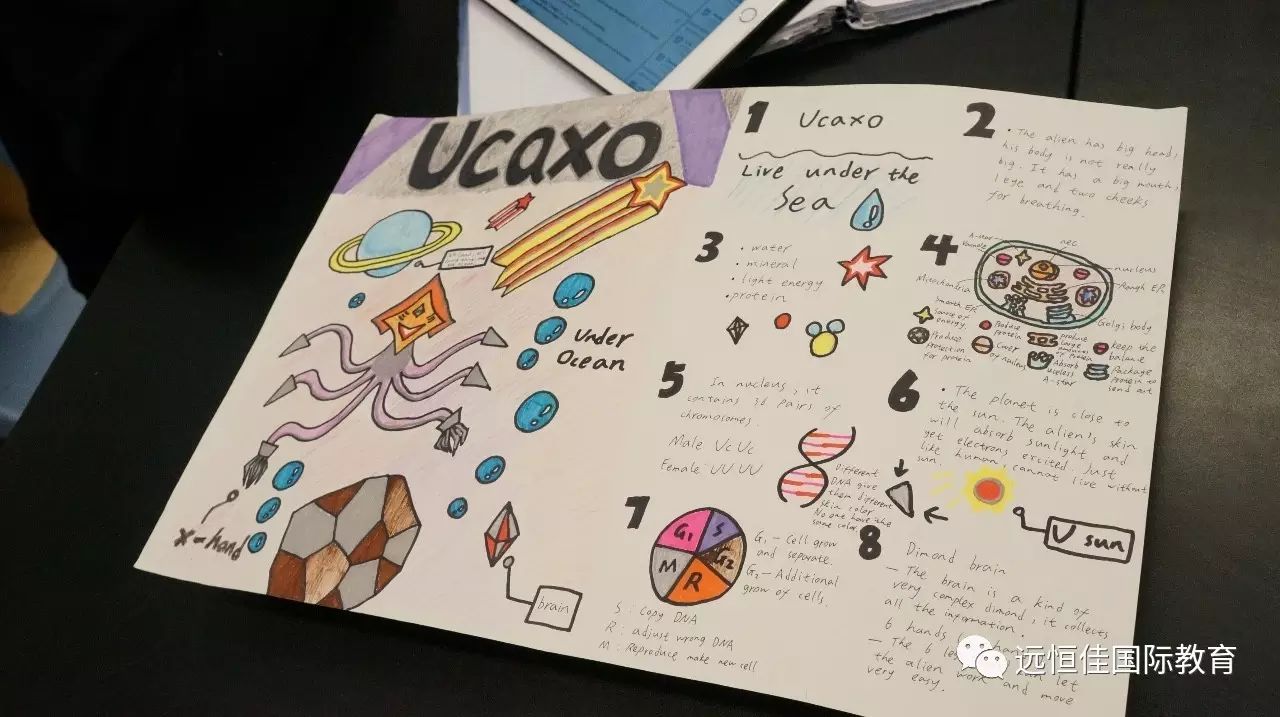 Ucaxo
Under
Ocean
x-hand
brain
1 Ucaxo
Live under the
Sea
2
• The alien has big head,
his body is not really
big. It has a big mouth,
1 eye and two cheeks
for breathing.
3
• water
• mineral
• light energy
• protein
4
A-star
aec
nucleus
Rough ER
Mitochondria
Golgi body
Smooth ER
source of
energy
Produce
Protection
for protein
Produce
protein
Cover
produce
large
of Protein
Absorb
useless
A-star
keep the
balance
Package
Protein to
send out
5
In nucleus, it
contains 36 pairs of
chromosomes.
Male Uc Uc
Female UU UU
Different
DNA give
them different
skin color
No one have the
same color.
6
• The planet is close to
the sun. The alien's skin
will absorb sunlight and
get electrons excited. Just
like human, cannot live without
sun.
U sun
7
G1 S
G2
M R
G1 - Cell grow
and separate.
G2 - Additional
grow of cells.
S : Copy DNA
R : adjust wrong DNA
M : Reproduce, make new cell
8
Dimond brain
- The brain is a kind of
very complex dimond, it collects
all the information.
6 hands
- The 6 let
the alien work and move
very easy.
远恒佳国际教育